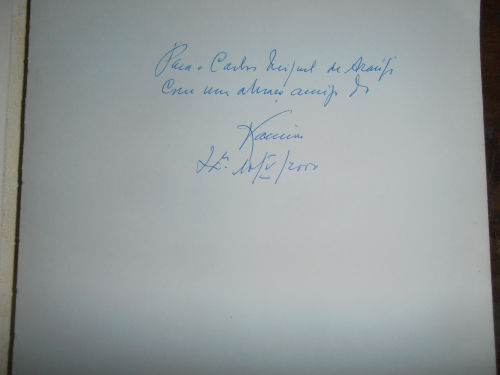 Para o Carlos Miguel de Araújo
Com um abraço amigo do
10/V/2000